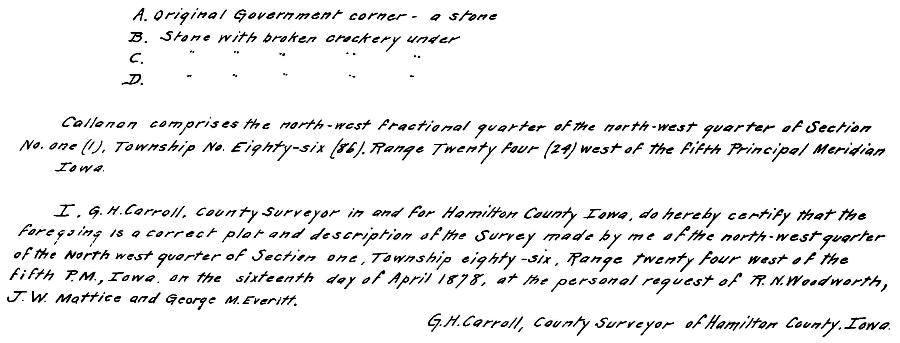 A. Original Government corner - a stone
B. Stone with broken crockery under
C. " " " " "
D. " " " " "
Callanan comprises the north-west fractional quarter of the north-west quarter of Section
No. one (1), Township No. Eighty-six (86), Range Twenty four (24) west of the fifth Principal Meridian
Iowa.
I, G.H. Carroll, County Surveyor in and for Hamilton County Iowa, do hereby certify that the
foregoing is a correct plat and description of the Survey made by me of the north-west quarter
of the North west quarter of Section one, Township eighty-six, Range twenty four west of the
fifth P.M., Iowa. on the sixteenth day of April 1878, at the personal request of R.N. Woodworth,
J.W. Mattice and George M. Everitt.
G.H. Carroll, County Surveyor of Hamilton County, Iowa.